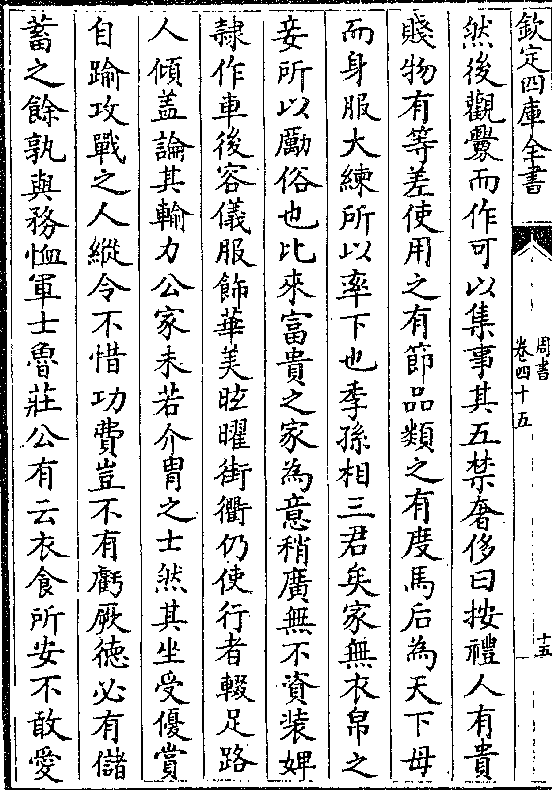 欽定四庫全書
周書
卷四十五
十五
然後觀釁而作可以集事其五禁奢侈曰按禮人有貴
賤物有等差使用之有節品類之有度馬后為天下母
而身服大練所以率下也季孫相三君矣家無衣帛之
妾所以勵俗也比來富貴之家為意稍廣無不資裝婢
隸作車後容儀服飾華美眩曜街衢仍使行者輟足路
人傾盖論其輸力公家未若介胄之士然其坐受優賞
自踰攻戰之人縱令不惜功費豈不有虧厥德必有儲
蓄之餘孰與務恤軍士魯莊公有云衣食所安不敢愛